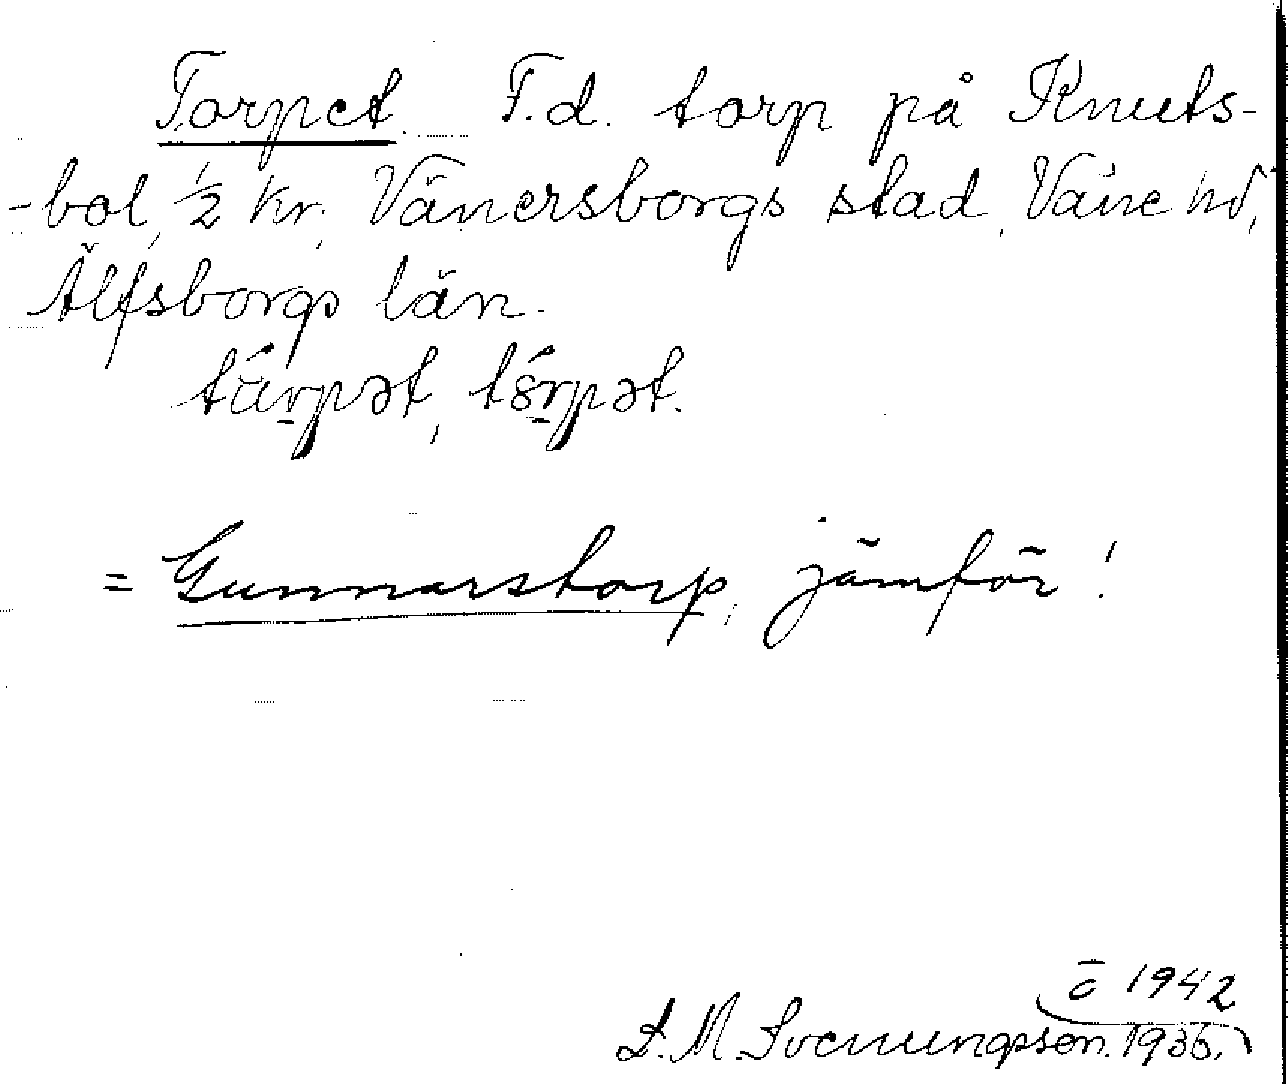 Torpet. F.d. torp på Knuts-
-bol, 1/2 kr, Vänersborgs stad, Väne hd,
Älfsborgs län.
tárpət, tórpət.
= Gunnarstorp, jämför!
ö 1942
L. M. Svenungsson. 1936.